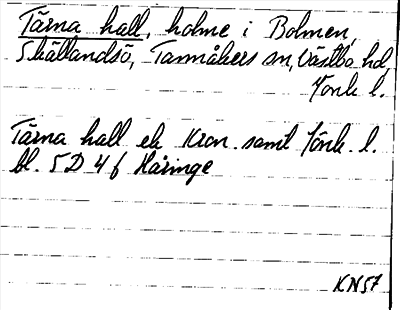 Tärna hall, holme i Bolmen,
Skällandsö, Tannåkers sn, Västbo hd
Jönk l.
Tärna hall ek Kron. saml Jönk. l.
bl. 5D 4f Håringe
KN57